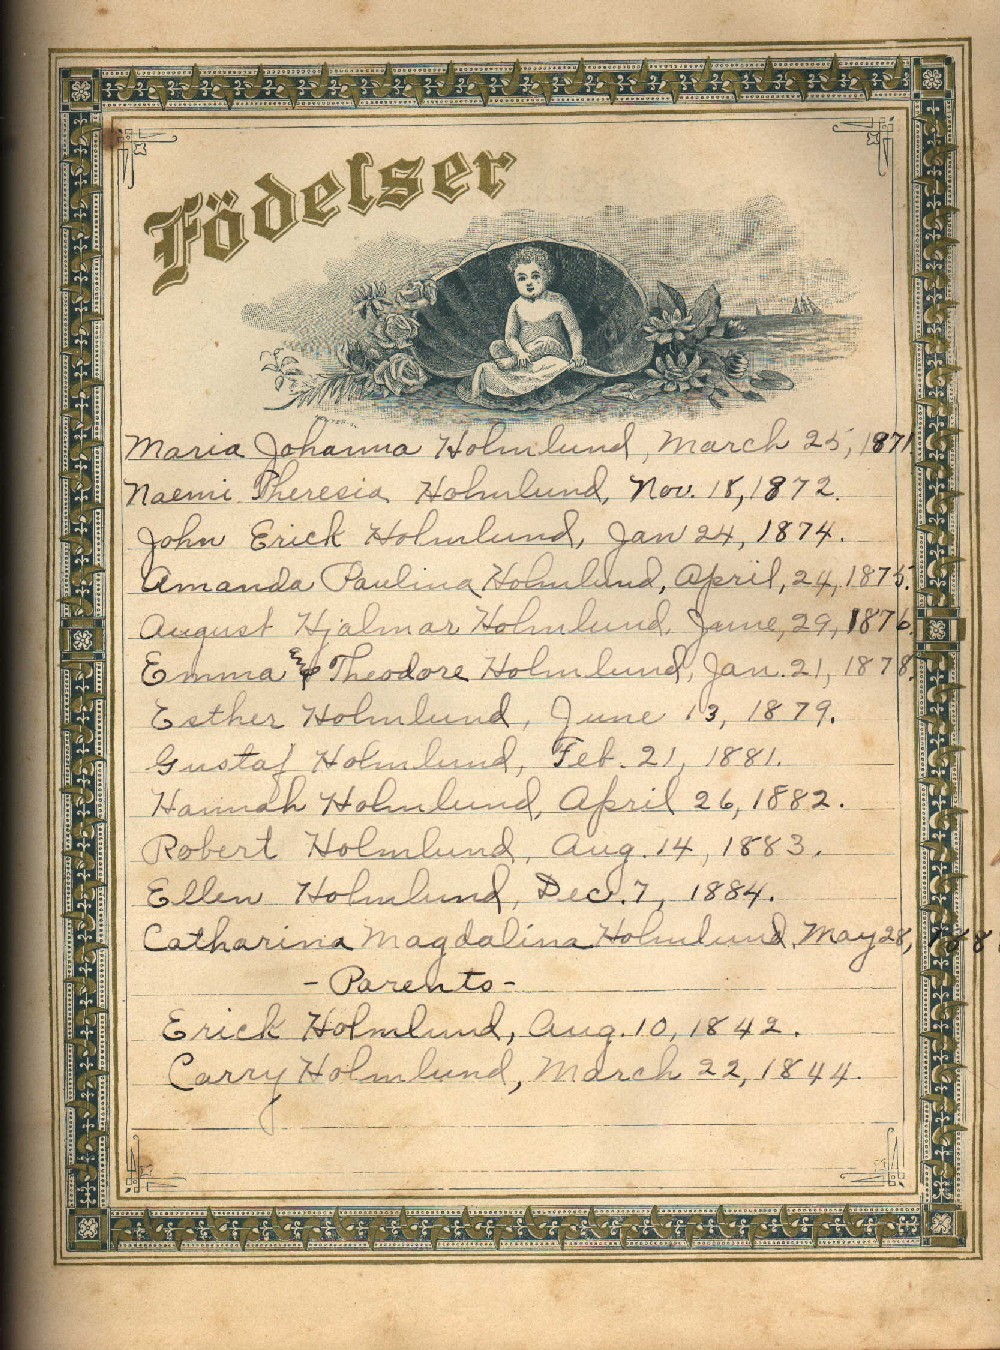 Födelser
Maria Johanna Holmlund, March 25, 1871.
Naemi Theresia Holmlund, Nov. 18, 1872.
John Erick Holmlund, Jan 24, 1874.
Amanda Paulina Holmlund, April, 24, 1875.
August Hjalmar Holmlund, June, 29, 1876.
Emma & Theodore Holmlund, Jan. 21, 1878.
Esther Holmlund, June 13, 1879.
Gustaf Holmlund, Feb. 21, 1881.
Hannah Holmlund, April 26, 1882.
Robert Holmlund, Aug. 14, 1883.
Ellen Holmlund, Dec. 7, 1884.
Catharina Magdalina Holmlund, May 28,
- Parents -
Erick Holmlund, Aug. 10, 1842.
Carry Holmlund, March 22, 1844.